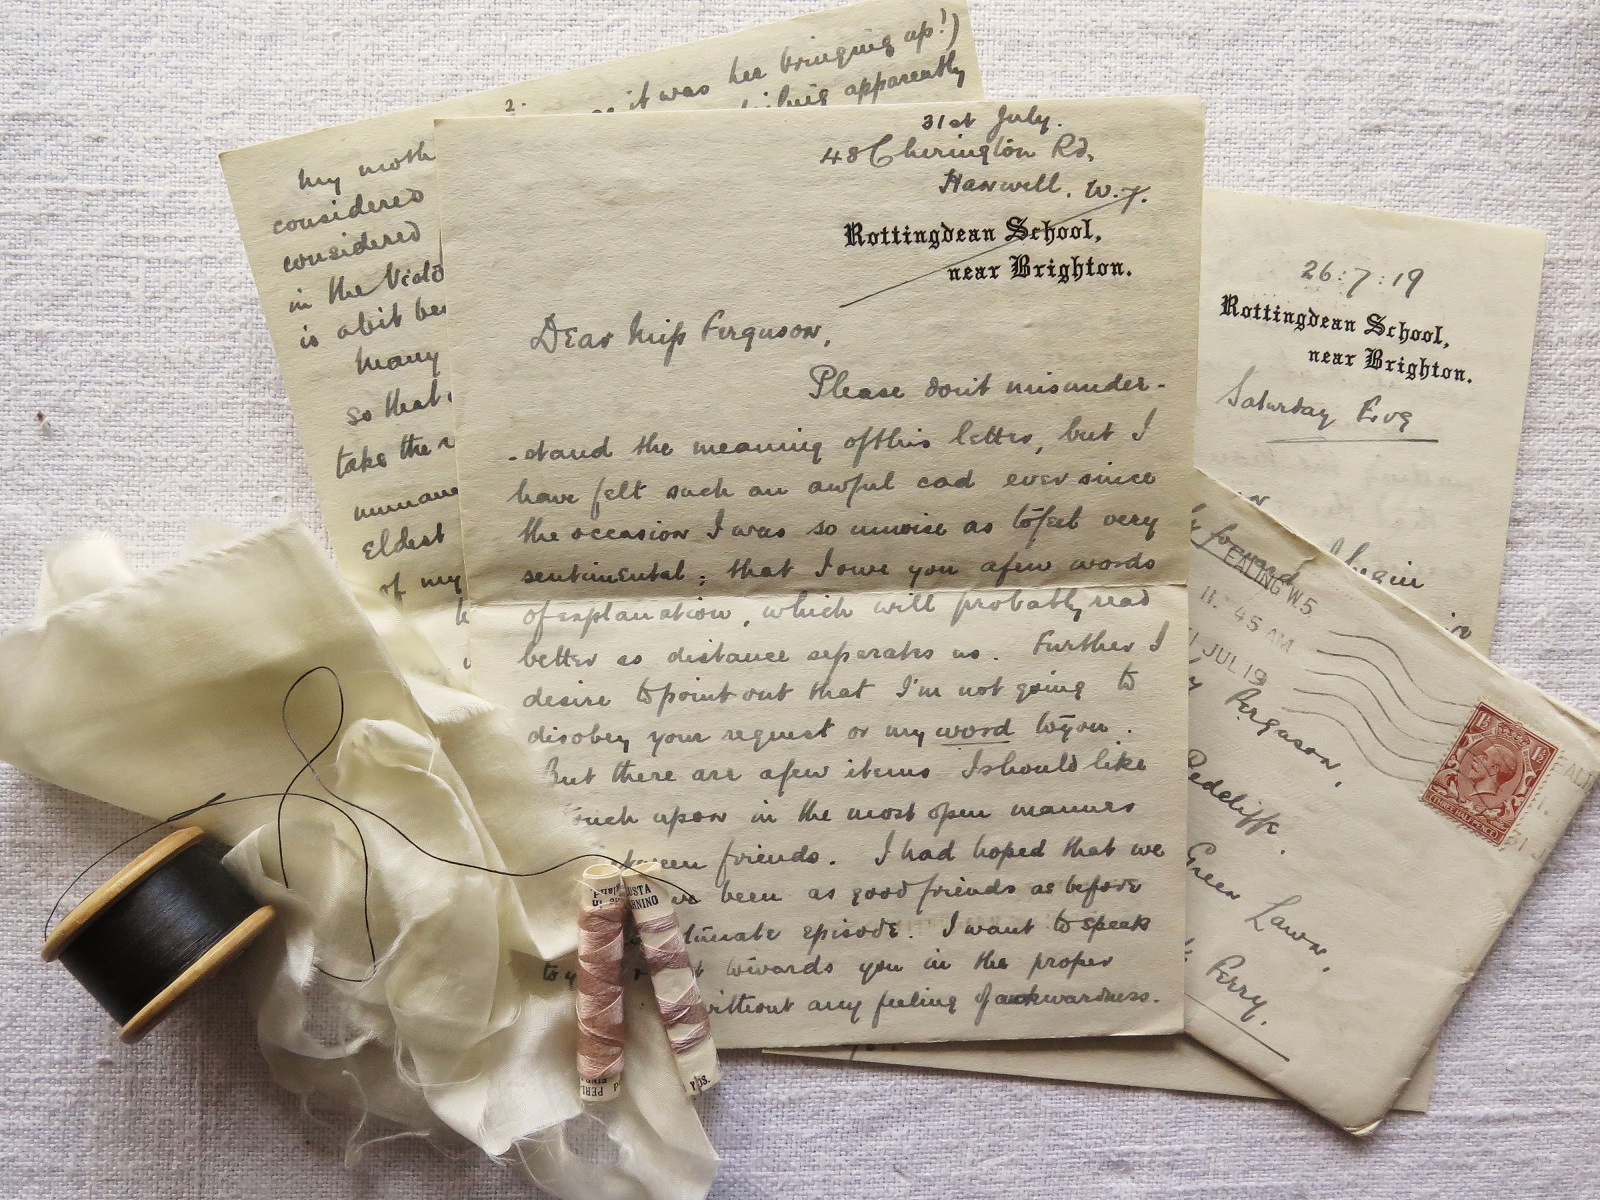 2.
it was her bringing up!)
apparently
my moth
considered
considered
in the Victo
is a bit bes
Many
so that
take the
Eldest
of my
31st July.
48 Cherington Rd,
Hanwell. W.7.
Rottingdean School,
near Brighton.
Dear Miss Ferguson,
Please don't misunder-
-stand the meaning of this letter, but I
have felt such an awful cad ever since
the occasion I was so unwise as to feel very
sentimental; that I owe you a few words
of explanation, which will probably read
better as distance separates us. Further I
desire to point out that I'm not going to
disobey your request or my word to you.
But there are a few items I should like
touch upon in the most open manner
between friends. I had hoped that we
been as good friends as before
episode. I want to speak
towards you in the proper
without any feeling of awkwardness.
26:7:19
Rottingdean School,
near Brighton.
Saturday Evg
again
forward
EALING W.5
11.45 AM
JUL 19
Ferguson,
Redcliffe.
Green Lawn,
Ferry.
1½ 1½
THREE HALFPENCE
USTA
RNINO
PERL
YDS.